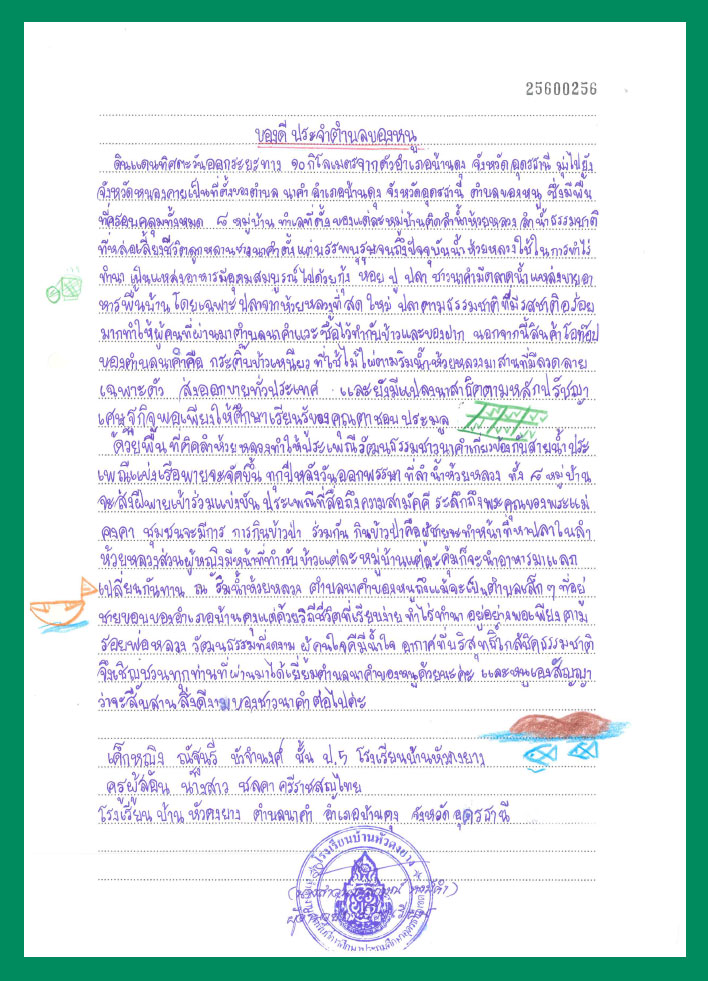 25600256
ของดี ประจำตำบลของหนู
ดินแดนทิศตะวันออกระยะทาง ๑๐ กิโลเมตรจากตัวอำเภอบ้านดุง จังหวัด อุดรธานี มุ่งไปยัง
จังหวัดหนองคายเป็นที่ตั้งของตำบล นาคำ อำเภอบ้านดุง จังหวัดอุดรธานี ตำบลของหนู ซึ่งมีพื้น
ที่ครอบคลุมทั้งหมด ๘ หมู่บ้าน ทำเลที่ตั้งของแต่ละหมู่บ้านติดลำน้ำห้วยหลวง ลำน้ำธรรมชาติ
ที่หล่อเลี้ยงชีวิตลูกหลานชาวนาคำตั้งแต่บรรพบุรุษจนถึงปัจจุบันน้ำห้วยหลวงใช้ในการทำไร่
ทำนา เป็นแหล่งอาหารมีอุดมสมบูรณ์ไปด้วยกุ้ง หอย ปู ปลา ชาวนาคำมีตลาดน้ำแหล่งขายอา
หารพื้นบ้าน โดยเฉพาะปลาจากห้วยหลวงที่สด ใหม่ ปลาตามธรรมชาติที่มีรสชาติอร่อย
มากทำให้ผู้คนที่ผ่านมาตำบลนาคำแวะ ซื้อไว้ทำกับข้าวและของฝาก นอกจากนี้สินค้าโอท๊อป
ของตำบลนาคำคือ กระติ๊บข้าวเหนียว ที่ใช้ไม้ไผ่ตามริมน้ำห้วยหลวงมาสานที่มีลวดลาย
เฉพาะตัว ส่งออกขายทั่วประเทศ และยังมีแปลงนาสาธิตตามหลักปรัชญา
เศรษฐกิจพอเพียงให้ศึกษาเรียนรู้ของคุณตาชอบ ประมูล
ด้วยพื้นที่ติดลำห้วยหลวงทำให้ประเพณีวัฒนธรรมชาวนาคำเกี่ยวข้องกับสายน้ำ ประ
เพณีแข่งเรือพายจะจัดขึ้น ทุกปีหลังวันออกพรรษา ที่ลำน้ำห้วยหลวง ทั้ง ๘ หมู่บ้าน
จะส่งฝีพายเข้าร่วมแข่งขัน ประเพณีที่สื่อถึงความสามัคคี ระลึกถึงพระคุณของพระแม่
คงคา ชุมชนจะมีการ การกินข้าวป่า ร่วมกัน กินข้าวป่าคือผู้ชายจะทำหน้าที่หาปลาในลำ
ห้วยหลวงส่วนผู้หญิงมีหน้าที่ทำกับข้าวแต่ละหมู่บ้านแต่ละคุ้มก็จะนำอาหารมาแลก
เปลี่ยนกันทาน ณ ริมน้ำห้วยหลวง ตำบลนาคำของหนูถึงแม้จะเป็นตำบลเล็ก ๆ ที่อยู่
ชายขอบของอำเภอบ้านดุงแต่ด้วยวิถีชีวิตที่เรียบง่าย ทำไร่ทำนา อยู่อย่างพอเพียง ตาม
รอยพ่อหลวง วัฒนธรรมที่งดงาม ผู้คนใจดีมีน้ำใจ อากาศที่บริสุทธิ์ใกล้ชิดธรรมชาติ
จึงเชิญชวนทุกท่านที่ผ่านมาได้เยี่ยมตำบลนาคำของหนูด้วยนะค่ะ และหนูเองสัญญา
ว่าจะสืบสาน สิ่งดีงามของชาวนาคำต่อไปค่ะ
เด็กหญิง ณัฐนรี ชั้น ป.5 โรงเรียนบ้านหัวดงยาง
ครูผู้สอน นางสาว ชลดา ศรีราชสญไทย
โรงเรียน บ้าน หัวดงยาง ตำบลนาคำ อำเภอบ้านดุง จังหวัด อุดรธานี
โรงเรียนบ้านหัวดงยาง